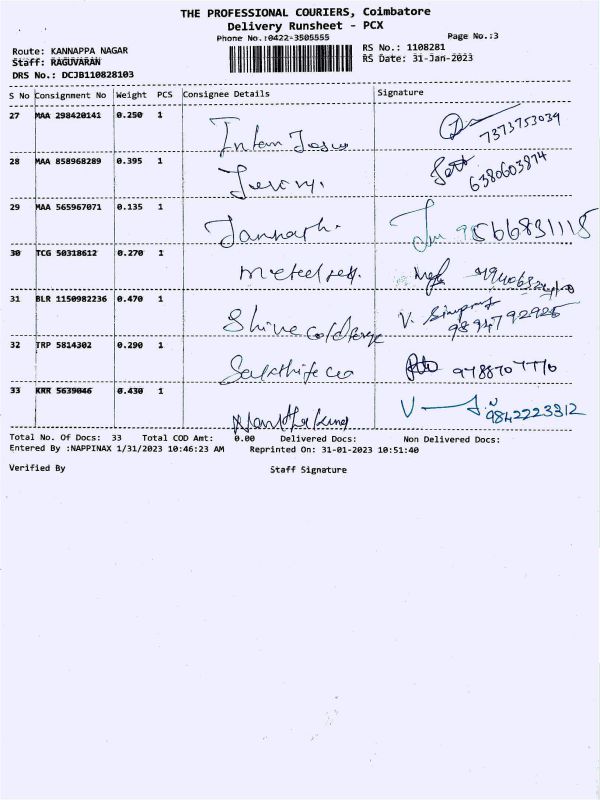 THE PROFESSIONAL COURIERS, Coimbatore
Delivery Runsheet - PCX
Phone No.:0422-3505555
Page No.:3
Route: KANNAPPA NAGAR
RS No.: 1108281
Staff: RAGUVARAN
RS Date: 31-Jan-2023
DRS No.: DCJB110828103
S No Consignment No Weight PCS Consignee Details Signature
27 MAA 298420141 0.250 1 7373753039
28 MAA 858968289 0.395 1 Jeremy. 6380603874
29 MAA 565967071 0.135 1 Jannath. 9566831118
30 TCG 50318612 0.270 1
31 BLR 1150982236 0.470 1 Shine Gold 9894792926
32 TRP 5814302 0.290 1
33 KRR 5639046 0.430 1 9842223312
Total No. Of Docs: 33 Total COD Amt: 0.00 Delivered Docs: Non Delivered Docs:
Entered By :NAPPINAX 1/31/2023 10:46:23 AM Reprinted On: 31-01-2023 10:51:40
Verified By Staff Signature